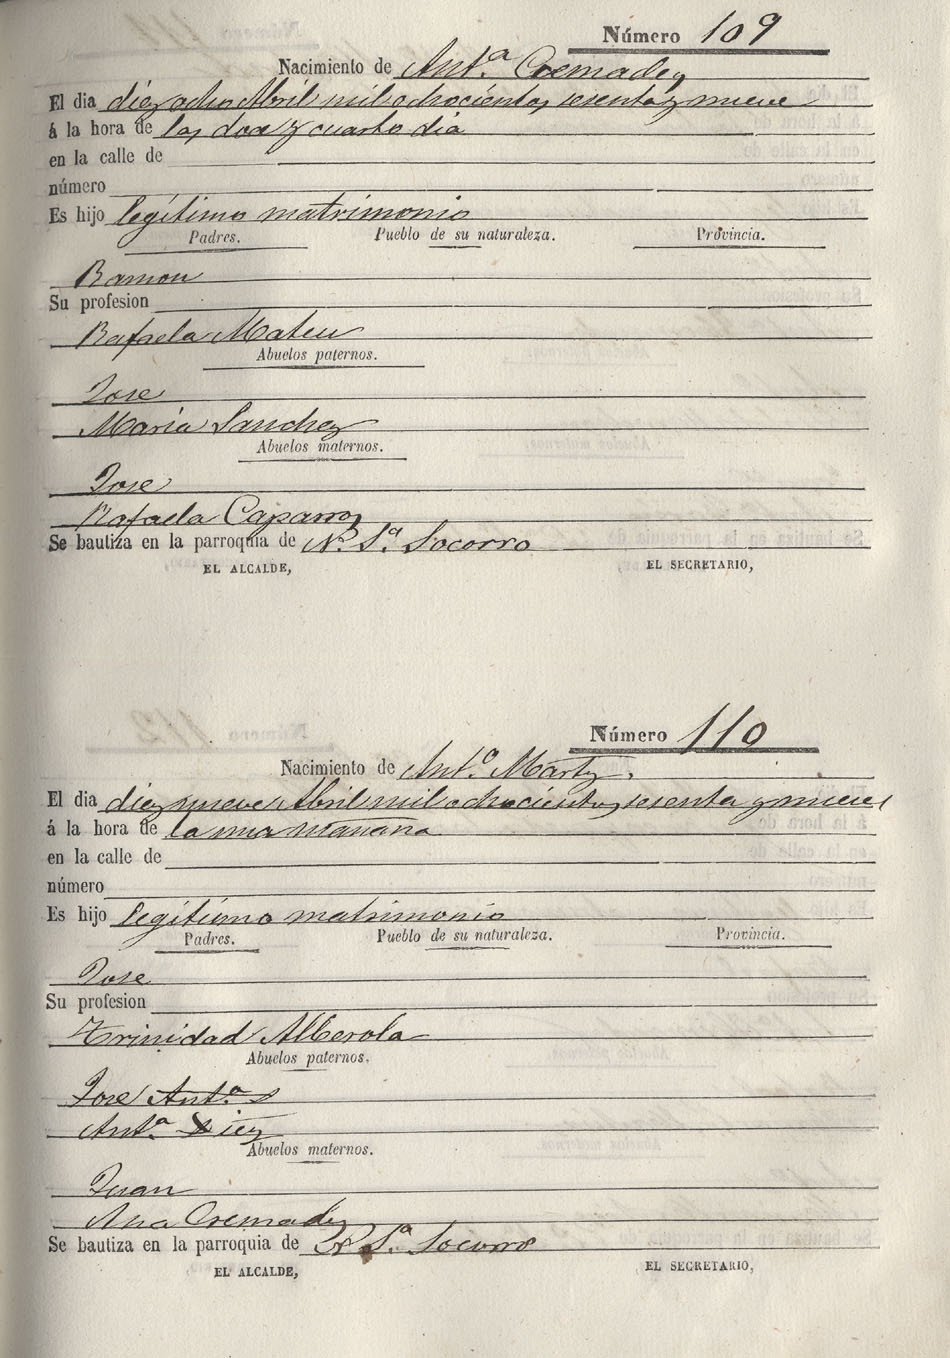 Número 109
Nacimiento de Ant.ª Cremades
El dia diez ocho Abril mil ochocientos sesenta y nueve
á la hora de las doce y cuarto dia
en la calle de
número
Es hijo legítimo matrimonio
Padres. Pueblo de su naturaleza. Provincia.
Ramon
Su profesion
Rafaela Mateu
Abuelos paternos.
Jose
Maria Sanchez
Abuelos maternos.
Jose
Rafaela Caparros
Se bautiza en la parroquia de N.ª S.ª Socorro
EL ALCALDE, EL SECRETARIO,
Número 110
Nacimiento de Ant.ª Martz.
El dia diez nueve Abril mil ochocientos sesenta y nueve
á la hora de la una mañana
en la calle de
número
Es hijo legítimo matrimonio
Padres. Pueblo de su naturaleza. Provincia.
Jose
Su profesion
Trinidad Alberola
Abuelos paternos.
Jose Ant.ª
Ant.ª Diez
Abuelos maternos.
Juan
Ana Cremades
Se bautiza en la parroquia de N.ª S.ª Socorro
EL ALCALDE, EL SECRETARIO,